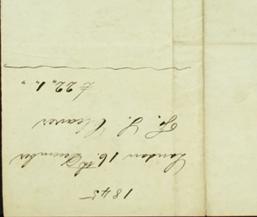 1845
London 16th December
Fr. S. Cleaver
£22.1.,